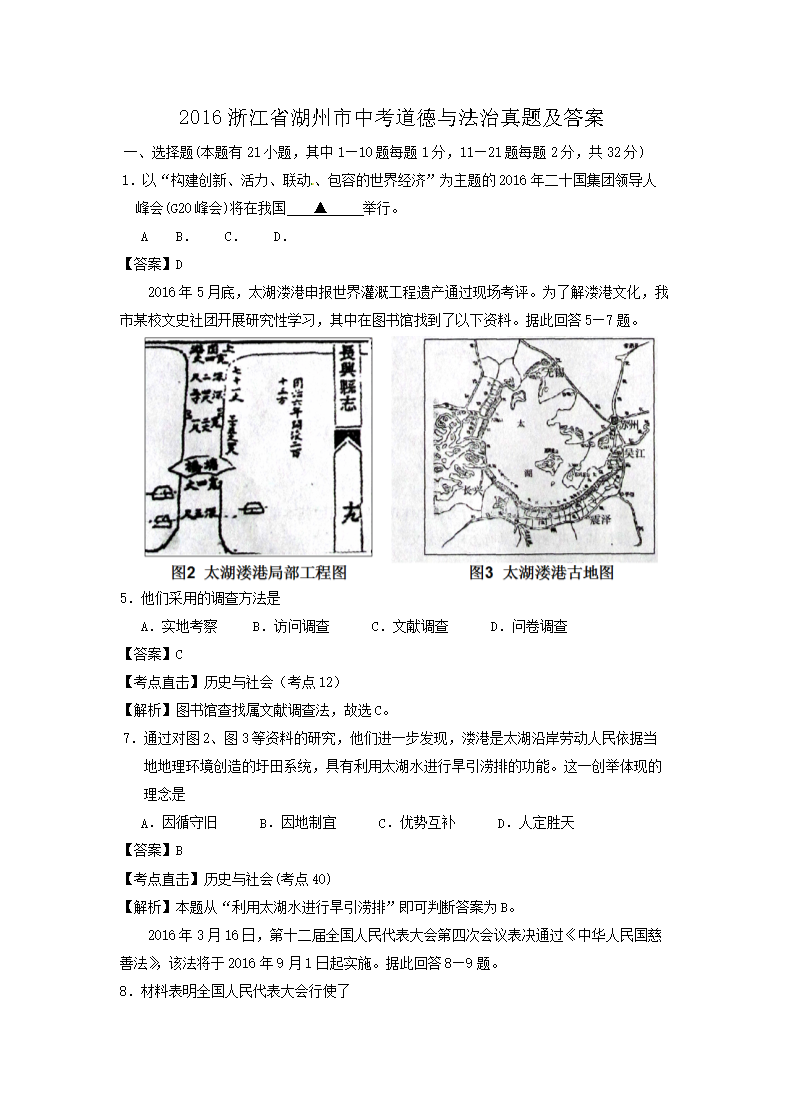 2016 浙江省湖州市中考道德与法治真题及答案
一、选择题(本题有 21 小题，其中 1—10 题每题 1 分，11—21 题每题 2 分，共 32 分)
1．以“构建创新、活力、联动、包容的世界经济”为主题的 2016 年二十国集团领导人
峰会(G20 峰会)将在我国 ▲ 举行。
A B． C． D．
【答案】D
2016 年 5 月底，太湖溇港申报世界灌溉工程遗产通过现场考评。为了解溇港文化，我
市某校文史社团开展研究性学习，其中在图书馆找到了以下资料。据此回答 5—7 题。
長興縣志
十九
同治六年開浚二百
十三方
无锡
苏州
吴江
太
湖
长兴
震泽
图2 太湖溇港局部工程图
图3 太湖溇港古地图
5．他们采用的调查方法是
A．实地考察 B．访问调查 C．文献调查 D．问卷调查
【答案】C
【考点直击】历史与社会（考点 12）
【解析】图书馆查找属文献调查法，故选 C。
7．通过对图 2、图 3 等资料的研究，他们进一步发现，溇港是太湖沿岸劳动人民依据当
地地理环境创造的圩田系统，具有利用太湖水进行旱引涝排的功能。这一创举体现的
理念是
A．因循守旧 B．因地制宜 C．优势互补 D．人定胜天
【答案】B
【考点直击】历史与社会(考点 40)
【解析】本题从“利用太湖水进行旱引涝排”即可判断答案为 B。
2016 年 3 月 16 日，第十二届全国人民代表大会第四次会议表决通过《中华人民国慈
善法》，该法将于 2016 年 9 月 1 日起实施。据此回答 8—9 题。
8．材料表明全国人民代表大会行使了